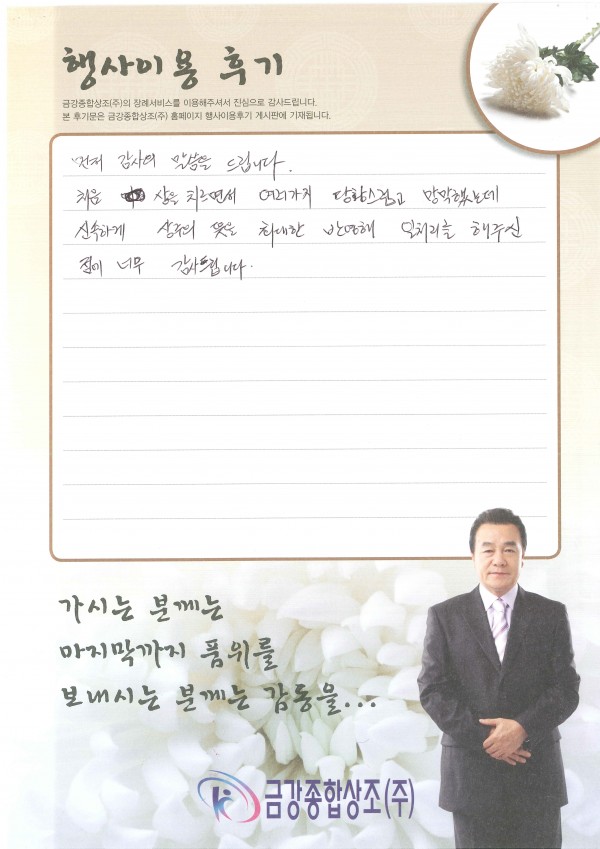 행사이용 후기
금강종합상조(주)의 장례서비스를 이용해주셔서 진심으로 감사드립니다.
본 후기문은 금강종합상조(주) 홈페이지 행사이용후기 게시판에 기재됩니다.
먼저 감사의 말씀을 드립니다.
처음 상을 치르면서 여러가지 당황스럽고 망막했는데
신속하게 상주의 뜻을 최대한 반영해 일처리를 해주신
점에 너무 감사드립니다.
가시는 분께는
마지막까지 품위를
보내시는 분께는 감동을...
금강종합상조(주)